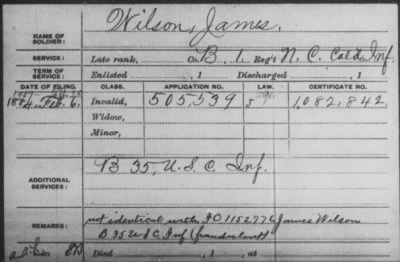 Wilson, James.
NAME OF SOLDIER:
SERVICE: Late rank, Co. B, 1. Reg't N. C. Cold. Inf.
TERM OF SERVICE: Enlisted , 1 Discharged , 1
DATE OF FILING. CLASS. APPLICATION NO. LAW. CERTIFICATE NO.
Feb. 6. Invalid, 505,539 1,082,842
Widow,
Minor,
ADDITIONAL SERVICES: B 35, U.S.C. Inf.
REMARKS: not identical with 1152776 James Wilson
B 35 U S C Inf (fraudulent)
Died , 1 at